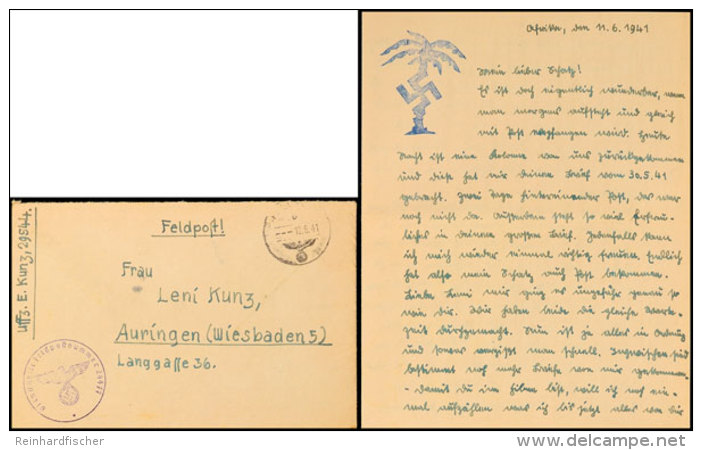 Uffz. E. Kunz, 29544.
Feldpost!
Frau
Leni Kunz,
Auringen (Wiesbaden 5)
Langgasse 36.
Afrika, den 11.6.1941
Mein lieber Schatz!
Es ist doch eigentlich wunderbar, wenn
man morgens aufsteht und gleich
mit Post empfangen wird. Heute
Nacht ist eine Kolonne von uns zurückgekommen
und diese hat mir deinen Brief vom 30.5.41
gebracht. Zwei Tage hintereinander Post, das war
noch nicht da. Außerdem steht so viel Erfreu-
liches in deinem großen Brief. Jedenfalls kann
ich mich wieder einmal richtig freuen. Endlich
hat also mein Schatz auch Post bekommen.
Liebe Leni mir ging es ungefähr genau so
wie dir. Wir haben beide die gleiche Warte-
zeit durchgemacht. Nun ist ja alles in Ordnung
und sowas vergißt man schnell. Inzwischen sind
bestimmt noch mehr Briefe von mir gekommen.
- Damit du im Bilde bist, will ich noch ein-
mal aufzählen was ich bis jetzt alles von dir
Reinhardfischer
www.delcampe.net